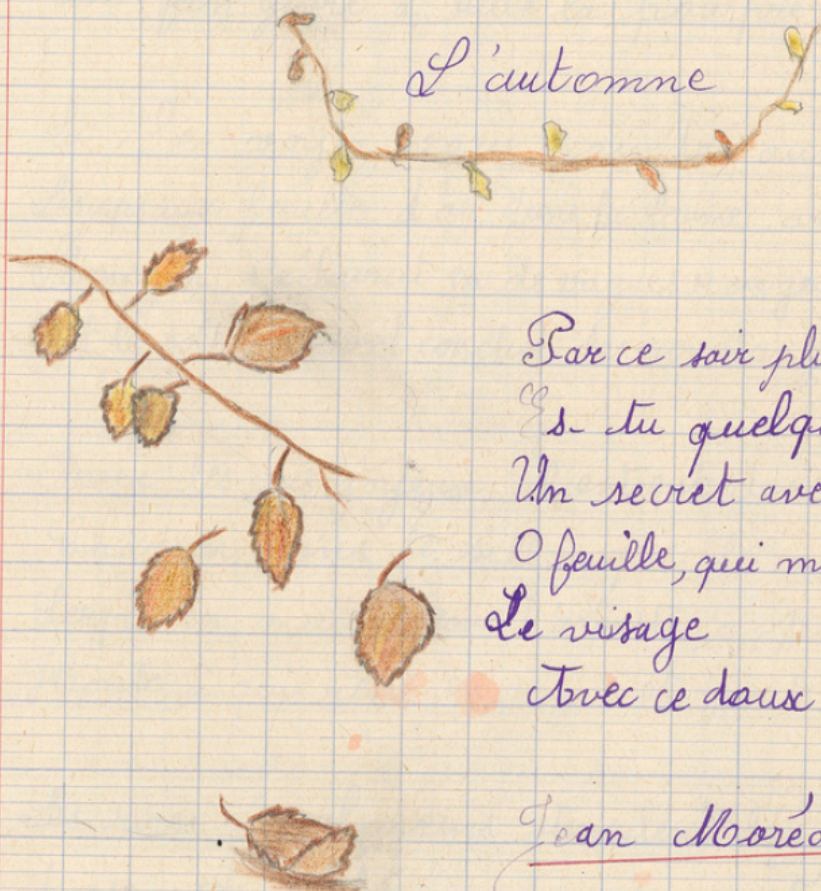 L'automne
Par ce soir plu
Es-tu quelqu
Un secret ave
O feuille, qui m
Le visage
Avec ce doux
Jean Moréa